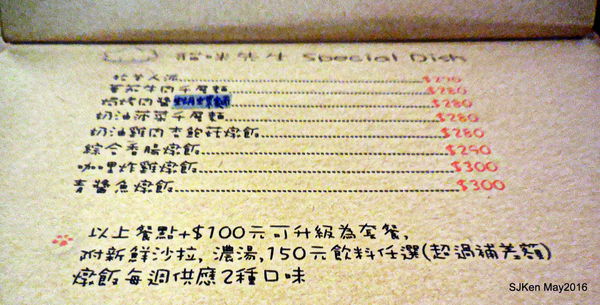 貓咪先生 Special Dish
蕃茄牛肉千層麵 $280
焗烤肉醬蝴蝶麵 $280
奶油菠菜千層麵 $280
奶油雞肉杏鮑菇燉飯 $280
綜合香腸燉飯 $290
咖哩炸雞燉飯 $300
青醬魚燉飯 $300
以上餐點+$100元可升級為套餐,
附新鮮沙拉, 濃湯, 150元飲料任選(超過補差額)
燉飯每週供應2種口味
SJKen May2016